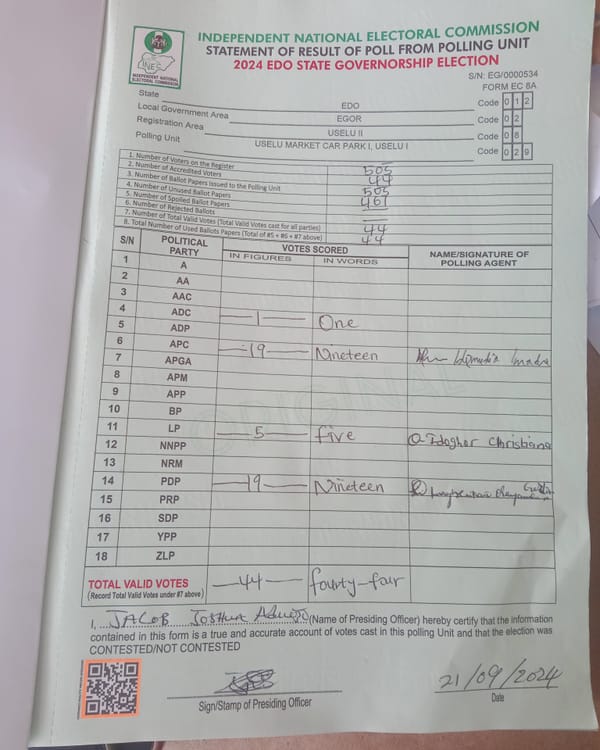 INDEPENDENT NATIONAL ELECTORAL COMMISSION
STATEMENT OF RESULT OF POLL FROM POLLING UNIT
2024 EDO STATE GOVERNORSHIP ELECTION
INEC
INDEPENDENT NATIONAL
ELECTORAL COMMISSION
S/N: EG/0000534
FORM EC 8A
State EDO Code 0 1 2
Local Government Area EGOR Code 0 2
Registration Area USELU II Code 0 8
Polling Unit USELU MARKET CAR PARK I, USELU I Code 0 2 9
1. Number of Voters on the Register 505
2. Number of Accredited Voters 44
3. Number of Ballot Papers Issued to the Polling Unit 505
4. Number of Unused Ballot Papers 461
5. Number of Spoiled Ballot Papers —
6. Number of Rejected Ballots —
7. Number of Total Valid Votes (Total Valid Votes cast for all parties) 44
8. Total Number of Used Ballots Papers (Total of #5 + #6 + #7 above) 44
S/N POLITICAL PARTY VOTES SCORED NAME/SIGNATURE OF POLLING AGENT
IN FIGURES IN WORDS
1 A
2 AA
3 AAC
4 ADC —1— One
5 ADP
6 APC —19— Nineteen
7 APGA
8 APM
9 APP
10 BP
11 LP —5— five
12 NNPP Idogho Christiana
13 NRM
14 PDP —19— Nineteen
15 PRP
16 SDP
17 YPP
18 ZLP
TOTAL VALID VOTES —44— fourty-four
(Record Total Valid Votes under #7 above)
ORIGINAL
I, JACOB JOSHUA (Name of Presiding Officer) hereby certify that the information
contained in this form is a true and accurate account of votes cast in this polling Unit and that the election was
CONTESTED/NOT CONTESTED
21/09/2024
Sign/Stamp of Presiding Officer Date